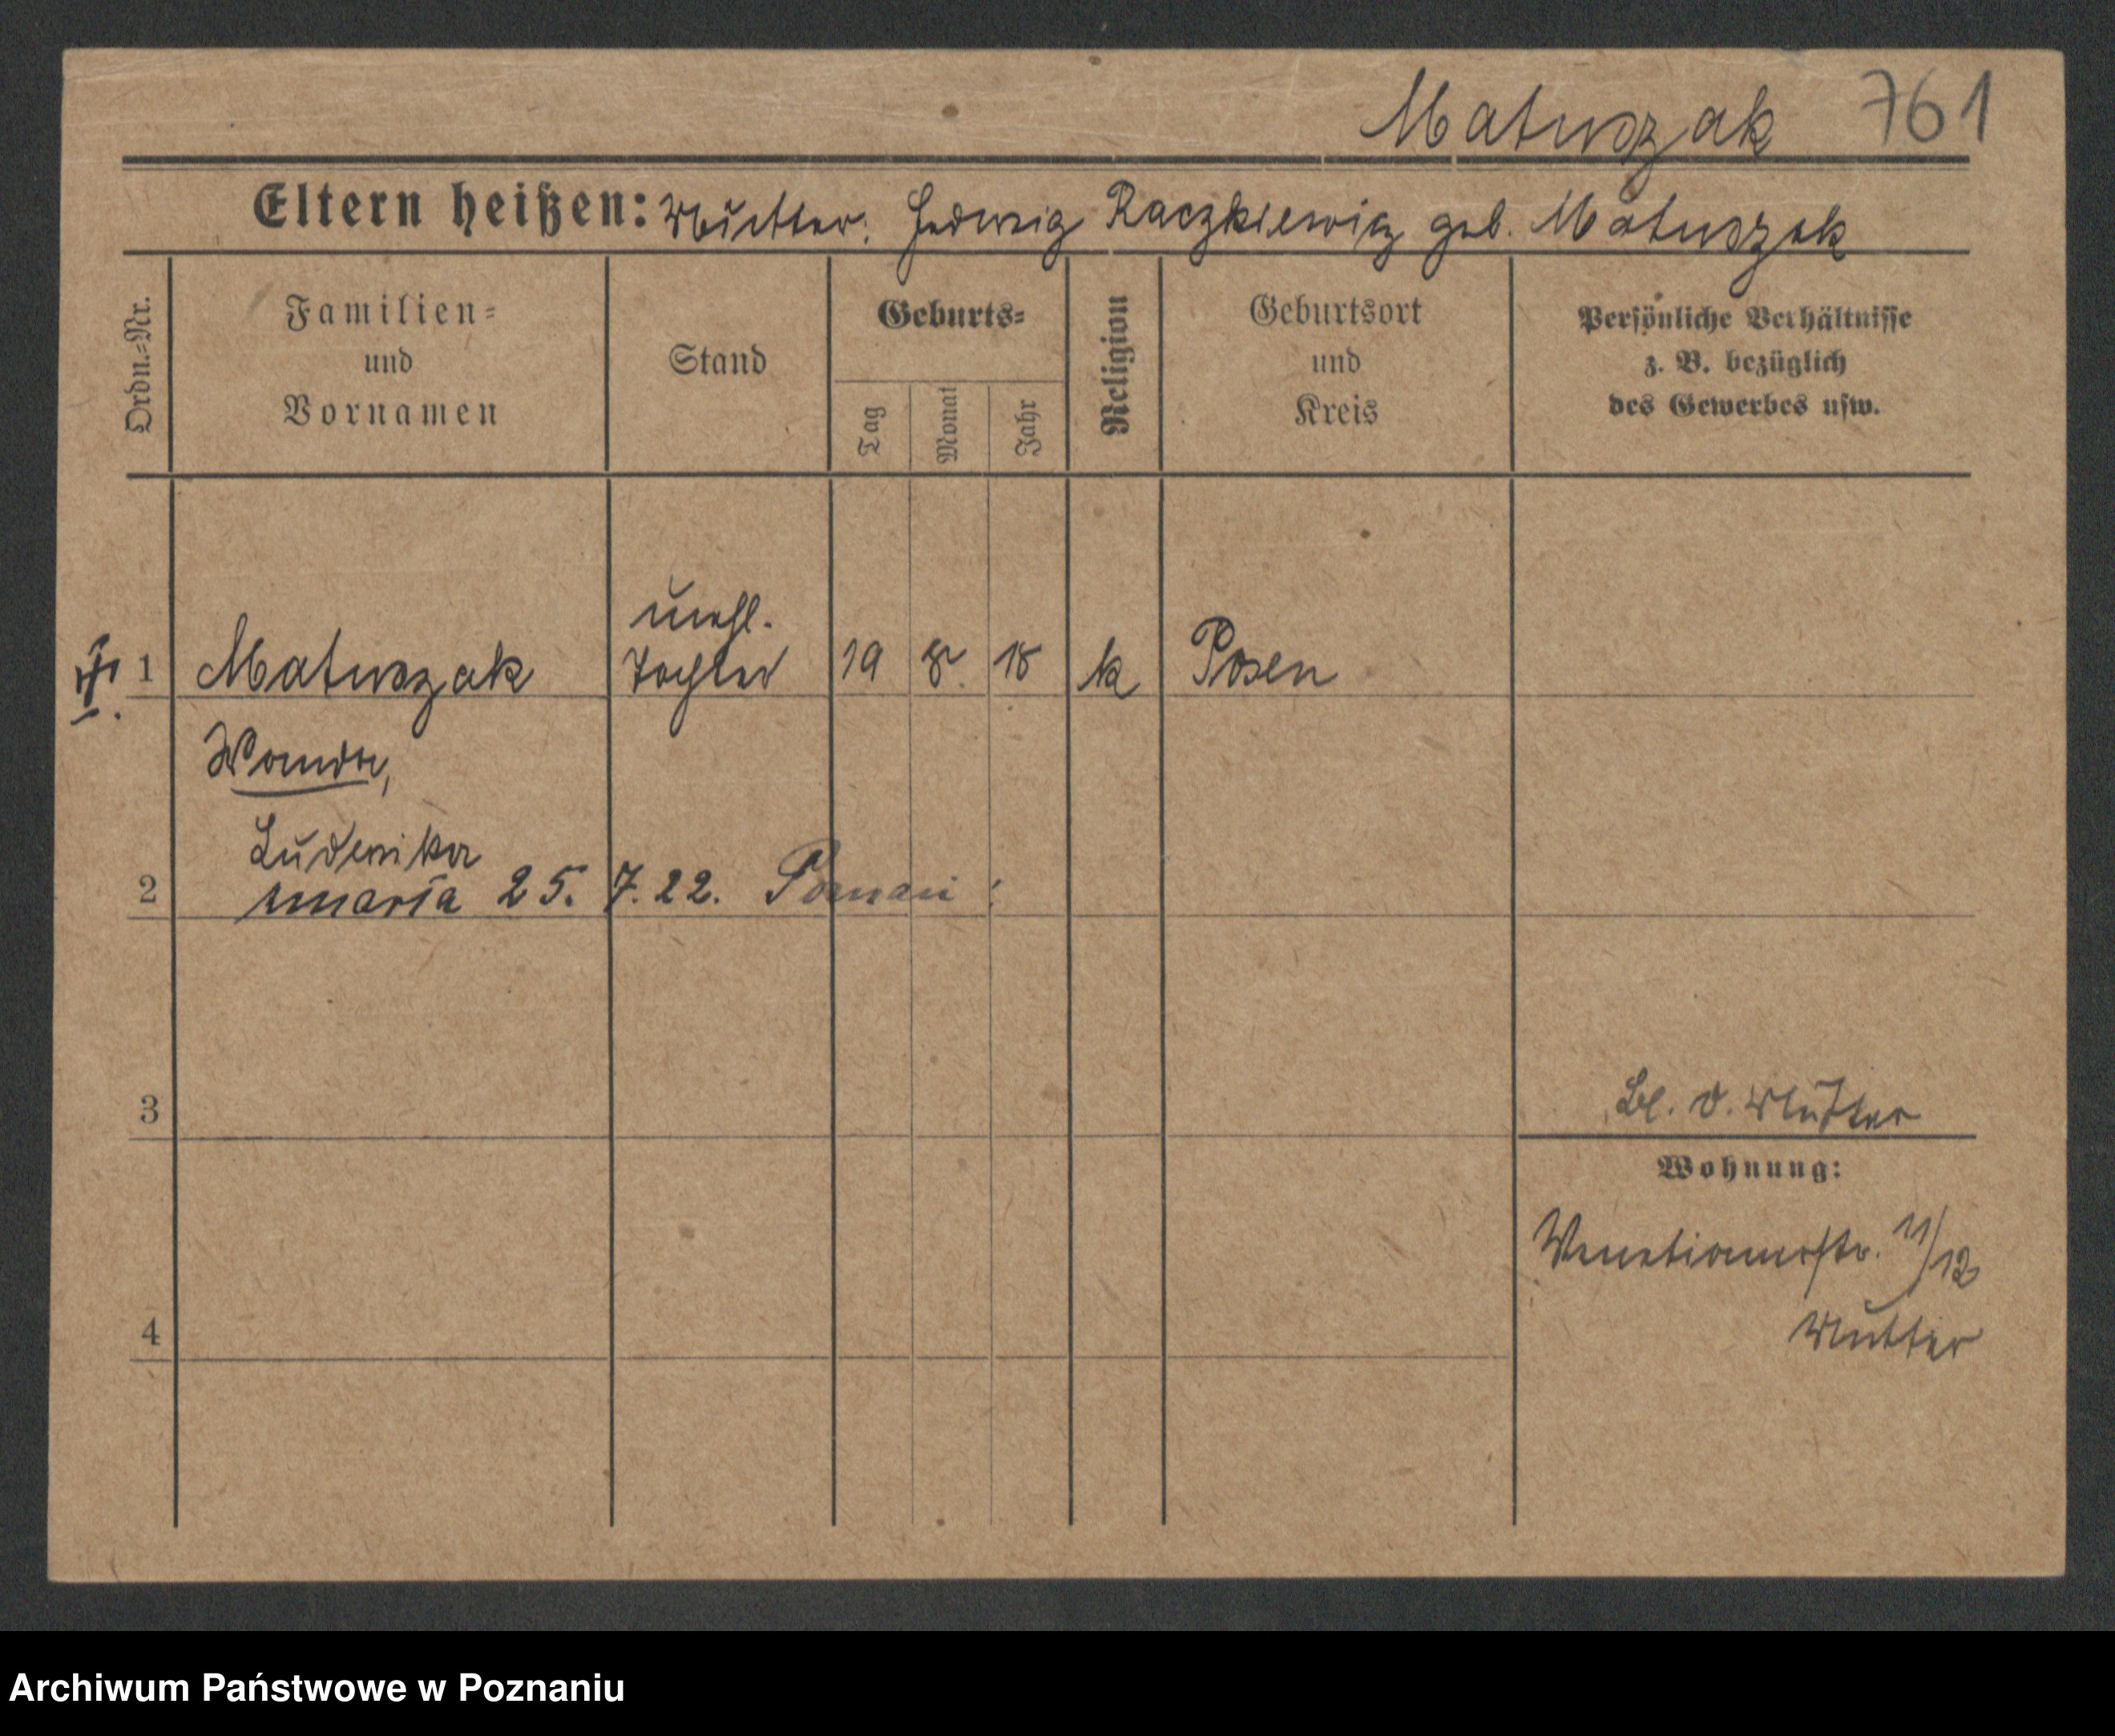 Matuszak 761
Eltern heißen: Mutter: Hedwig Raczkiewicz geb. Matuszak
Ordn.=Nr.
Familien=
und
Vornamen
Stand
Geburts=
Tag
Monat
Jahr
Religion
Geburtsort
und
Kreis
Persönliche Verhältnisse
z. B. bezüglich
des Gewerbes usw.
unehl.
1 Matuszak Tochter 19 8. 18 k Posen
Wanda,
Ludwika
2 maria 25. 7. 22. Poznań
3
Bl. d. Mutter
Wohnung:
Venetianerstr. 11/12
Mutter
4
Archiwum Państwowe w Poznaniu